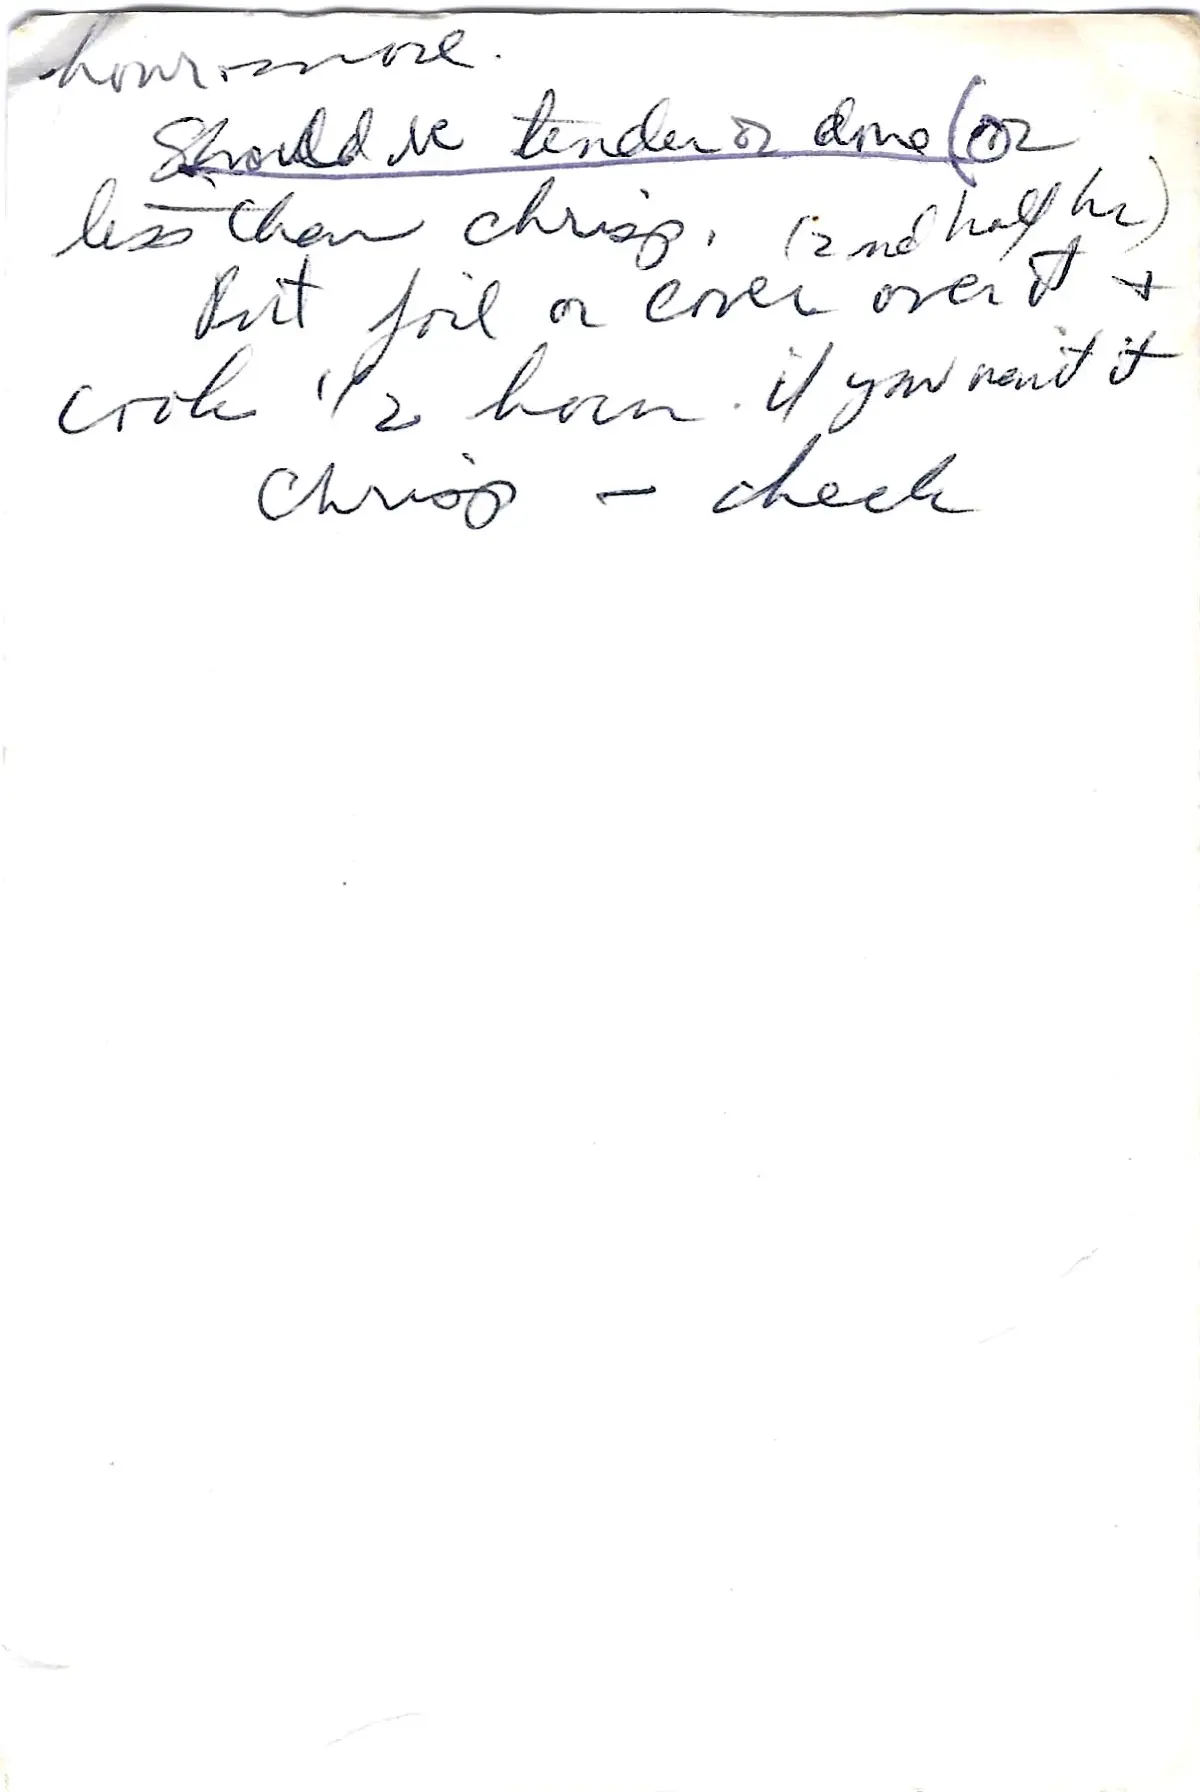 hour more.
Should be tender or done (or
less than chrisp. (2nd half hr)
Put foil or cover over it +
cook 1/2 hour. if you want it
Chrisp - check